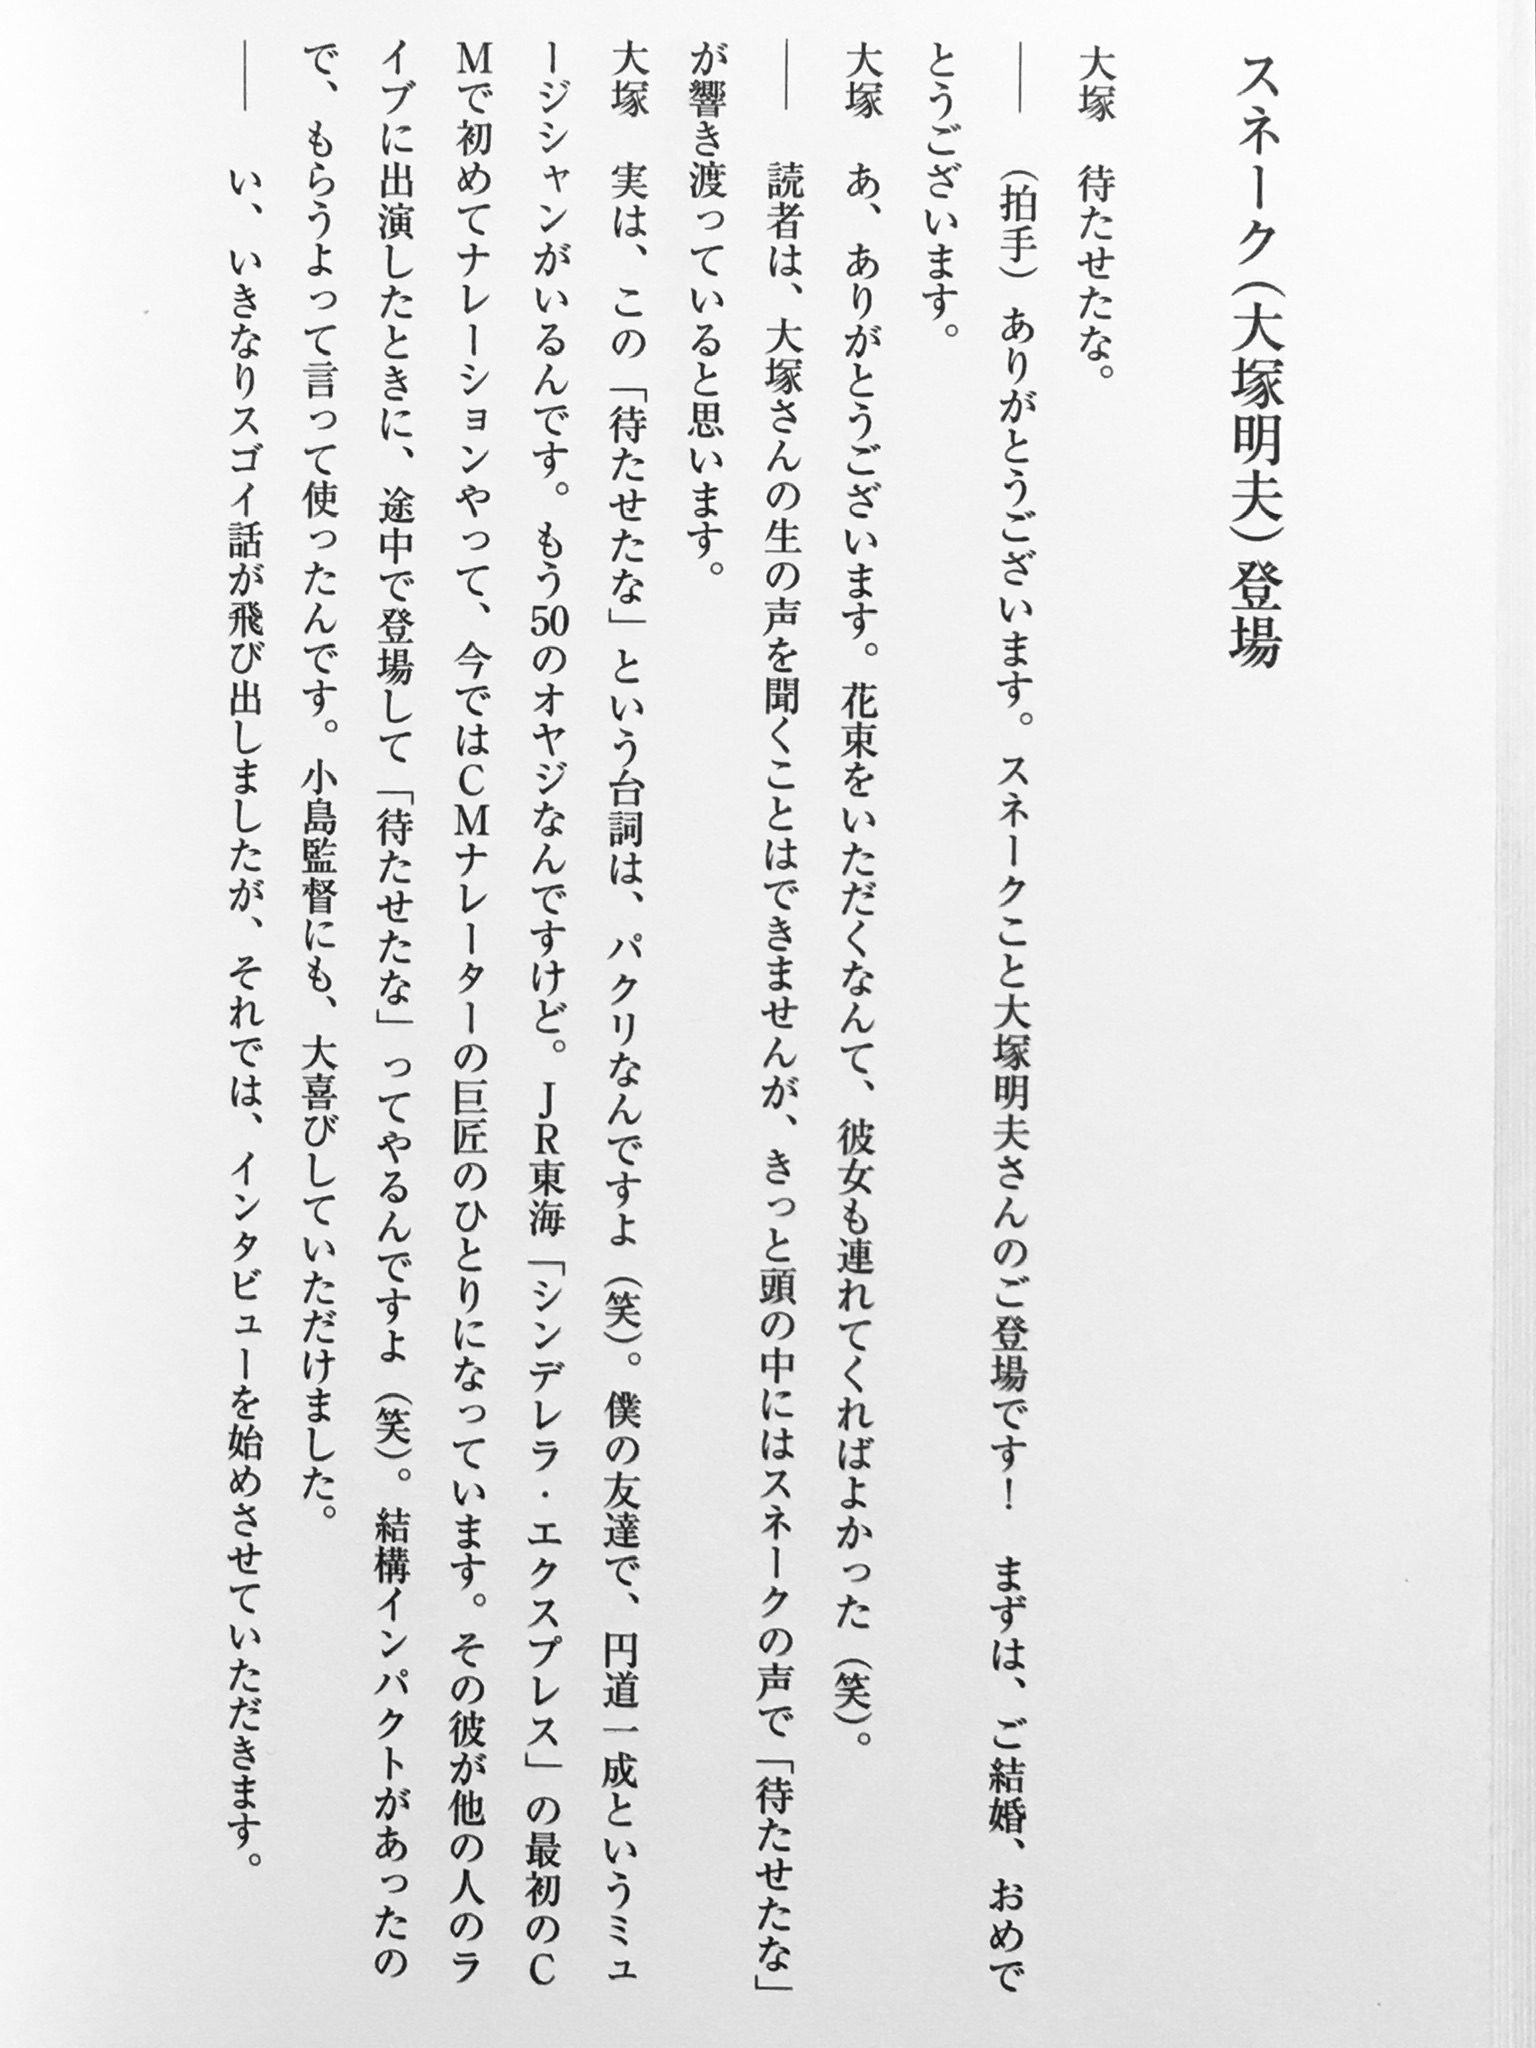 スネーク（大塚明夫）登場
大塚　待たせたな。
――　（拍手）ありがとうございます。スネークこと大塚明夫さんのご登場です！　まずは、ご結婚、おめで
とうございます。
大塚　あ、ありがとうございます。花束をいただくなんて、彼女も連れてくればよかった（笑）。
――　読者は、大塚さんの生の声を聞くことはできませんが、きっと頭の中にはスネークの声で「待たせたな」
が響き渡っていると思います。
大塚　実は、この「待たせたな」という台詞は、パクリなんですよ（笑）。僕の友達で、円道一成というミュ
ージシャンがいるんです。もう50のオヤジなんですけど。ＪＲ東海「シンデレラ・エクスプレス」の最初のＣ
Ｍで初めてナレーションやって、今ではＣＭナレーターの巨匠のひとりになっています。その彼が他の人のラ
イブに出演したときに、途中で登場して「待たせたな」ってやるんですよ（笑）。結構インパクトがあったの
で、もらうよって言って使ったんです。小島監督にも、大喜びしていただけました。
――　い、いきなりスゴイ話が飛び出しましたが、それでは、インタビューを始めさせていただきます。